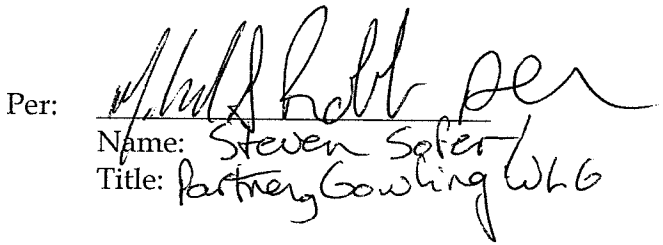 Per:
Name: Steven Sofer
Title: Partner, Gowling WLG